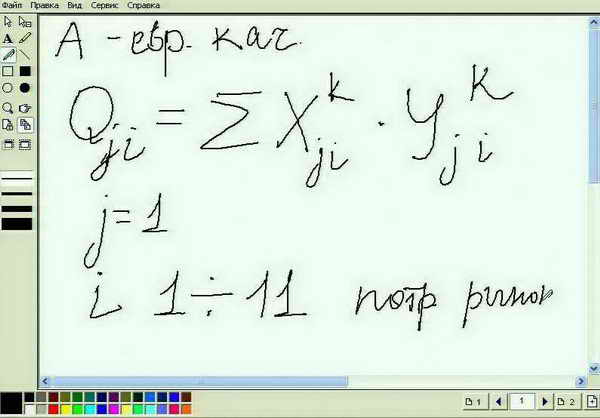 Файл Правка Вид Сервис Справка
А - евр. кач.
Q_ji = Σ X_ji^k · Y_ji^k
j = 1
i 1 ÷ 11 потр ринок
1 1 2